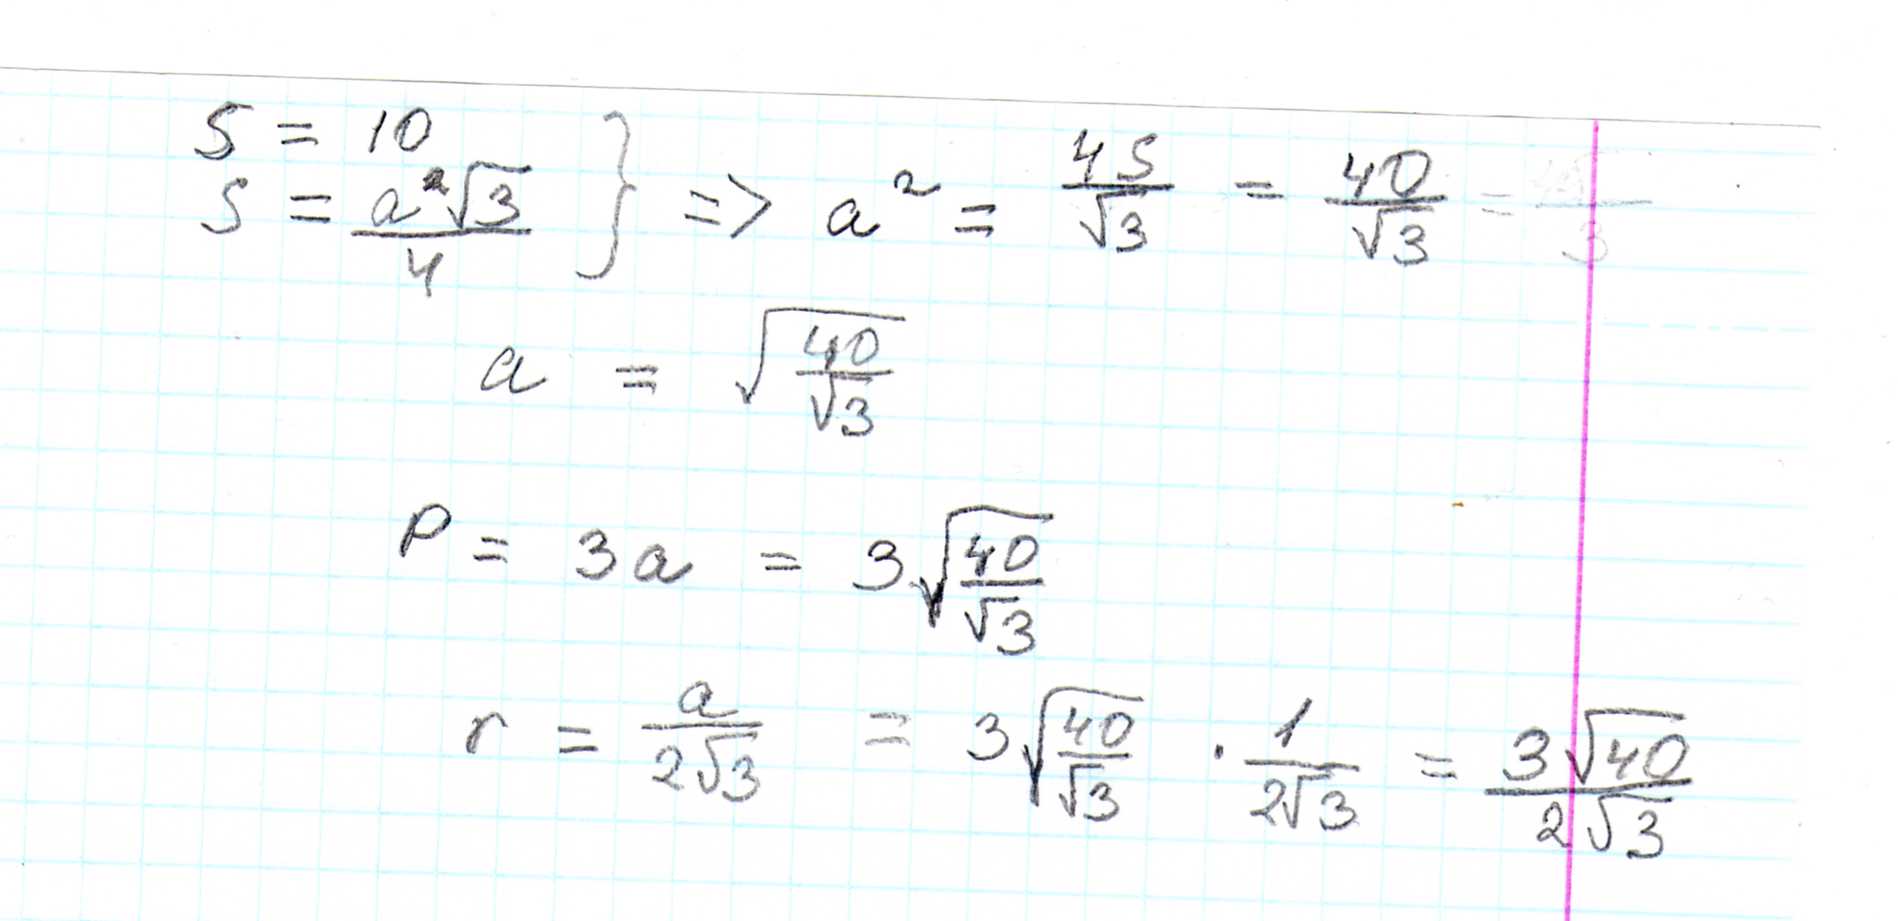 S = 10
S = a²√3/4 } => a² = 4S/√3 = 40/√3 = /3
a = √(40/√3)
P = 3a = 3√(40/√3)
r = a/2√3 = 3√(40/√3) · 1/2√3 = 3√40/2√3